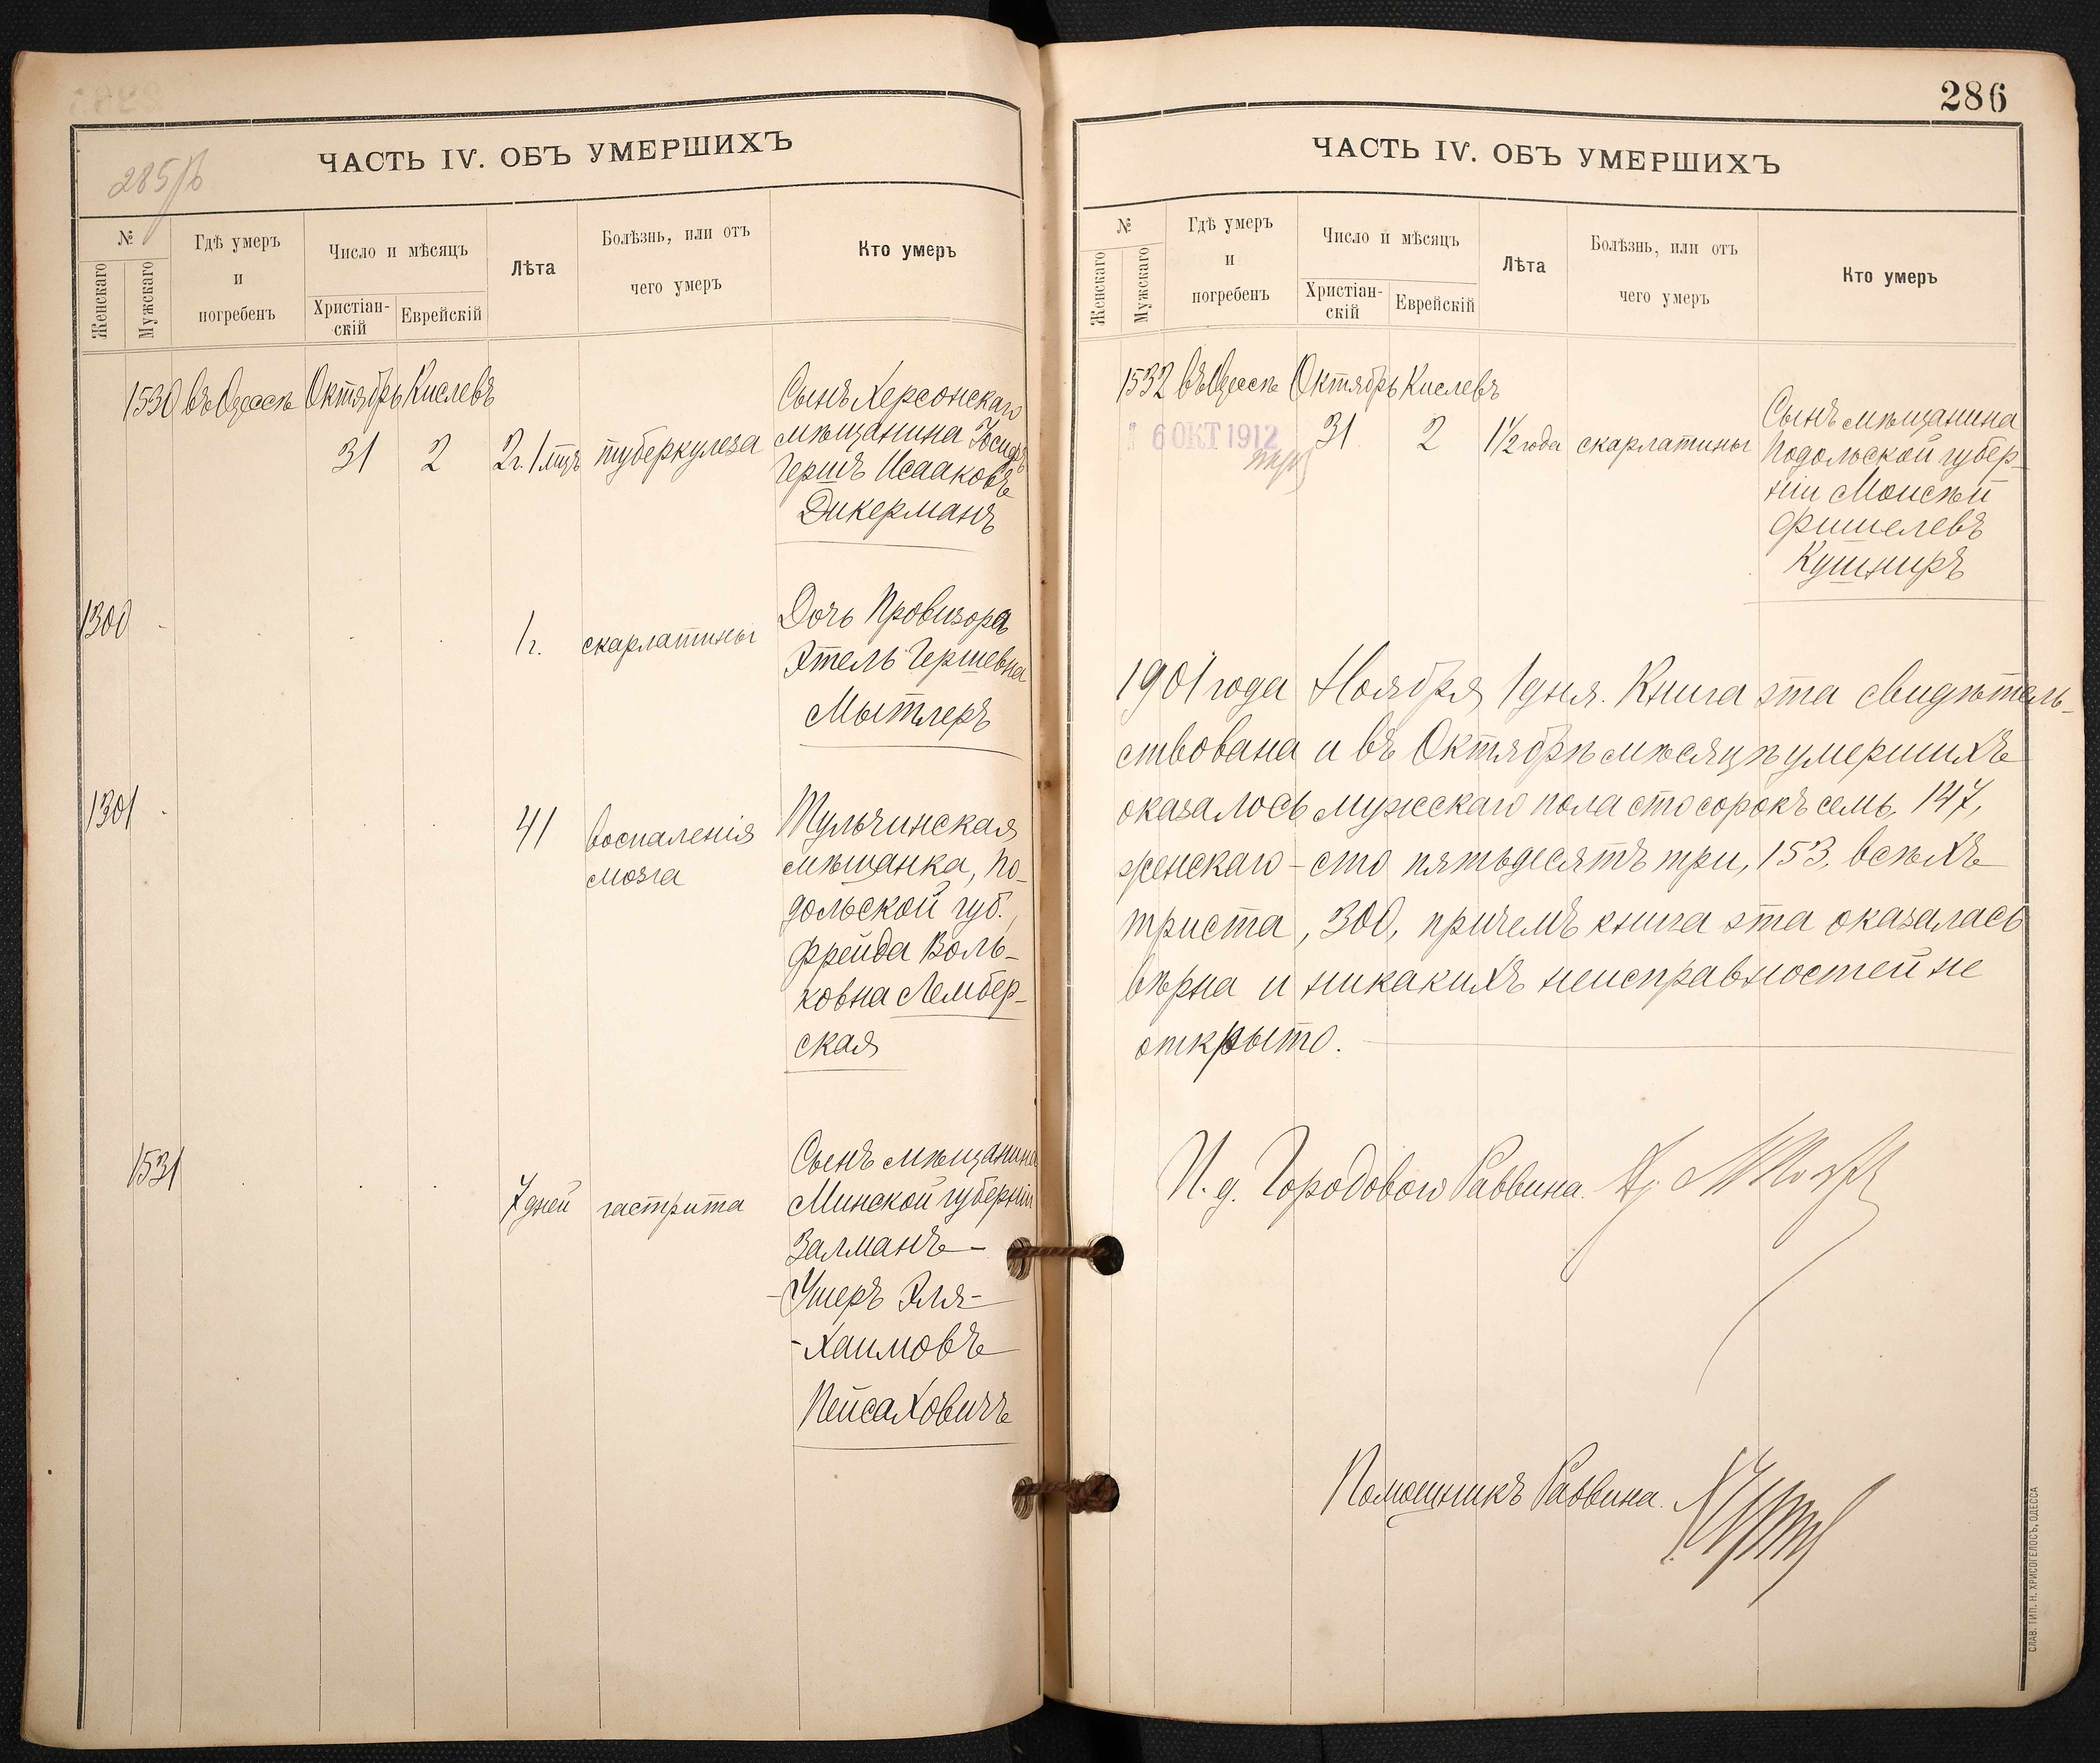 285/б
ЧАСТЬ IV. ОБЪ УМЕРШИХЪ
№
Женскаго
Мужскаго
Гдѣ умеръ
и
погребенъ
Число и мѣсяцъ
Христіан-
скій
Еврейскій
Лѣта
Болѣзнь, или отъ
чего умеръ
Кто умеръ
1530 въ Одессѣ Октябрь Кислевъ
31 2 2г. 1 мцъ туберкулеза
Сынъ Херсонскаго
мѣщанина Іосифъ
Гершъ Исааковъ
Дикерманъ
1300
1г. скарлатины
Дочь Провизора
Этель Гершевна
Мытлеръ
1301
41 воспаленія
мозга
Тульчинская
мѣщанка, По-
дольской губ.,
Фрейда Воль-
ковна Лембер-
ская
1531
7 дней гастрита
Сынъ мѣщанина
Минской губерніи
Залманъ-
-Ушеръ Эля-
-Хаимовъ
Пейсаховичъ
286
ЧАСТЬ IV. ОБЪ УМЕРШИХЪ
№
Женскаго
Мужскаго
Гдѣ умеръ
и
погребенъ
Число и мѣсяцъ
Христіан-
скій
Еврейскій
Лѣта
Болѣзнь, или отъ
чего умеръ
Кто умеръ
1532 въ Одессѣ Октябрь Кислевъ
6 ОКТ 1912
31 2 1½ года скарлатины
Сынъ мѣщанина
Подольской губер-
ніи Моисѣй
Фишелевъ
Кушниръ
1901 года Ноября 1 дня. Книга эта свидѣтель-
ствована и въ Октябрѣ мѣсяцѣ умершихъ
оказалось мужескаго пола сто сорокъ семь, 147,
женскаго - сто пятьдесятъ три, 153, всѣхъ
триста, 300, причемъ книга эта оказалась
вѣрна и никакихъ неисправностей не
открыто.
И. д. Городового Раввина.
Помощникъ Раввина.
СЛАВ. ТИП. Н. ХРИСОГЕЛОСЪ, ОДЕССА